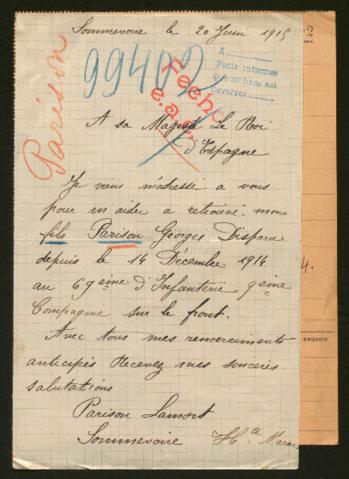 Sommevoire le 20 Juin 1915
99402
Parison
A
Pedir informes
Devolver
Fecho
A sa Majesté Le Roi
d'Espagne
Je viens m'adresse a vous
pour m'aider a retrouvé mon
fils Parison Georges Disparu
depuis le 14 Décembre 1914
au 69eme d'Infanterie 9eme
Compagnie sur le front.
Avec tous mes remerciements
anticipés Recevez mes sincères
salutations
Parison Lamort
Sommevoire Hte Marne